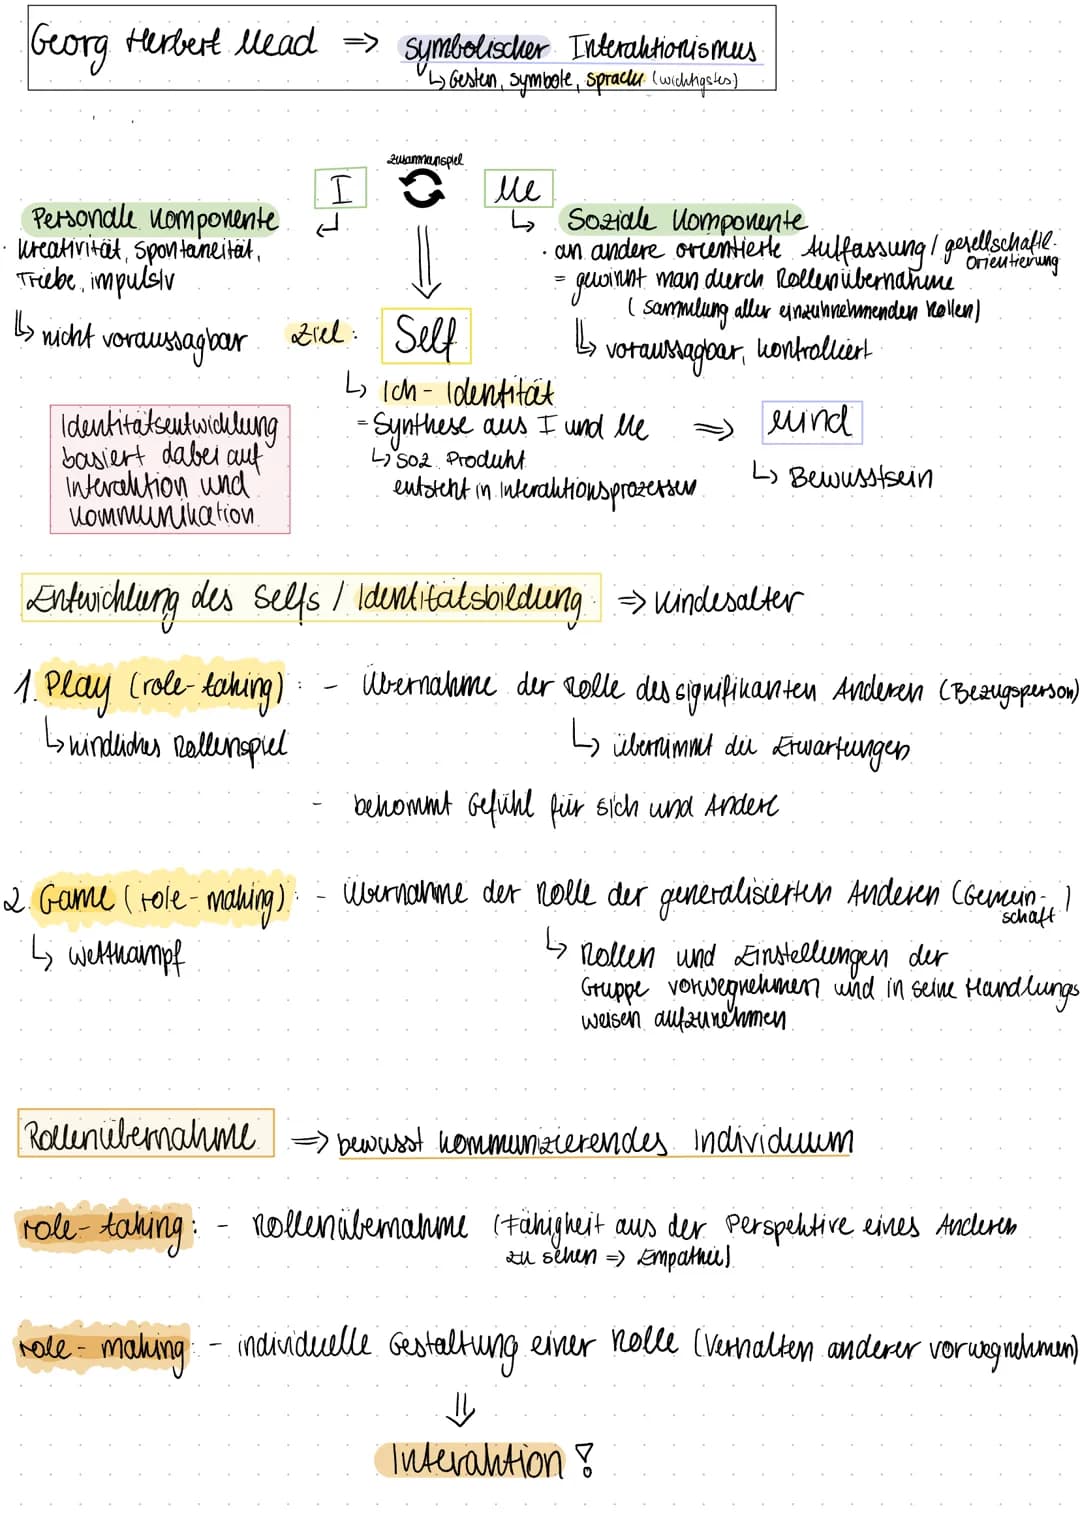 Georg Herbert Mead => symbolischer Interaktionismus
↳ Gesten, Symbole, Sprache (wichtigstes)
zusammenspiel
I
Me
Personale Komponente
Kreativität, Spontaneität,
Triebe, impulsiv
↳ nicht voraussagbar
Soziale Komponente
· an andere orientierte Auffassung / gesellschaftl. Orientierung
= gewinnt man durch Rollenübernahme
(Sammlung aller einzunehmenden Rollen)
↳ voraussagbar, kontrolliert
Ziel: Self
↳ Ich-Identität
= Synthese aus I und Me => Mind
↳ soz. Produkt
entsteht in Interaktionsprozessen
↳ Bewusstsein
Identitätsentwicklung
basiert dabei auf
Interaktion und
Kommunikation
Entwicklung des Selfs / Identitätsbildung => Kindesalter
1. Play (role-taking): - Übernahme der Rolle des signifikanten Anderen (Bezugsperson)
↳ kindliches Rollenspiel
↳ übernimmt die Erwartungen
- bekommt Gefühl für sich und Andere
2. Game (role-making): - Übernahme der Rolle der generalisierten Anderen (Gemein-
schaft)
↳ Wettkampf
↳ Rollen und Einstellungen der
Gruppe vorwegnehmen und in seine Handlungs
weisen aufzunehmen
Rollenübernahme => bewusst kommunizierendes Individuum
role-taking: - Rollenübernahme (Fähigkeit aus der Perspektive eines Anderen
zu sehen => Empathie)
role-making: - individuelle Gestaltung einer Rolle (Verhalten anderer vorwegnehmen)
Interaktion !